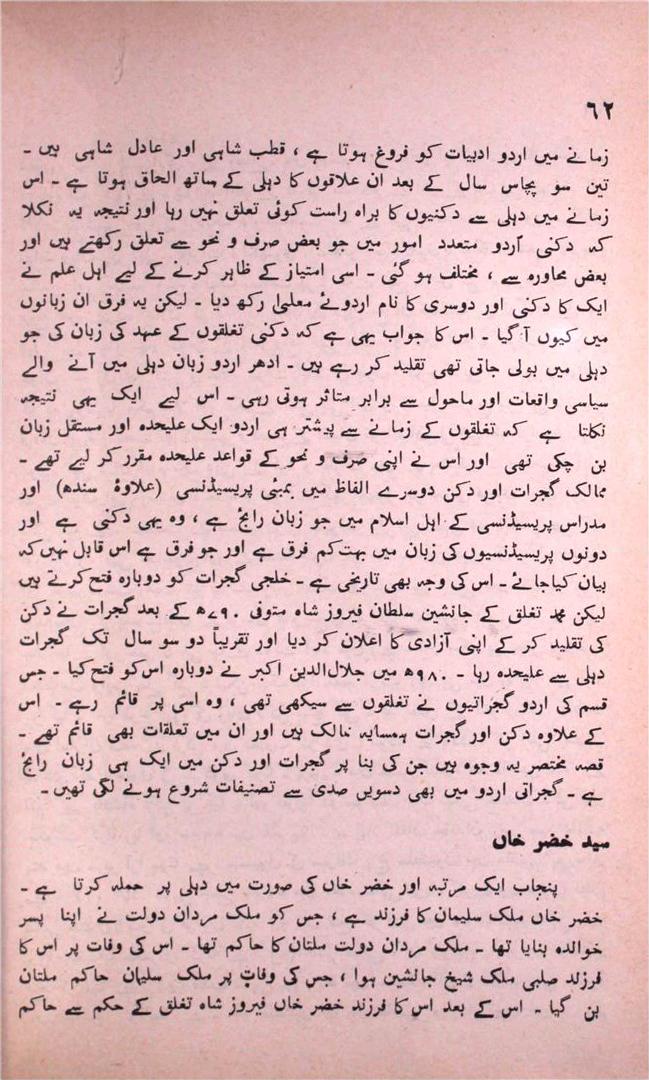 ٦٢
زمانے میں اردو ادبیات کو فروغ ہوتا ہے ، قطب شاہی اور عادل شاہی ہیں ۔
تین سو پچاس سال کے بعد ان علاقوں کا دہلی کے ساتھ الحاق ہوتا ہے ۔ اس
زمانے میں دہلی سے دکنیوں کا براہ راست کوئی تعلق نہیں رہا اور نتیجہ یہ نکلا
کہ دکنی اُردو متعدد امور میں جو بعض صرف و نحو سے تعلق رکھتے ہیں اور
بعض محاورہ سے ، مختلف ہو گئی ۔ اسی امتیاز کے ظاہر کرنے کے لیے اہل علم نے
ایک کا دکنی اور دوسری کا نام اردوئے معلیٰ رکھ دیا ۔ لیکن یہ فرق ان زبانوں
میں کیوں آ گیا ۔ اس کا جواب یہی ہے کہ دکنی تغلقوں کے عہد کی زبان کی جو
دہلی میں بولی جاتی تھی تقلید کر رہے ہیں ۔ ادھر اردو زبان دہلی میں آنے والے
سیاسی واقعات اور ماحول سے برابر متاثر ہوتی رہی ۔ اس لیے ایک یہی نتیجہ
نکلتا ہے کہ تغلقوں کے زمانے سے پیشتر ہی اردو ایک علیحدہ اور مستقل زبان
بن چکی تھی اور اس نے اپنی صرف و نحو کے قواعد علیحدہ مقرر کر لیے تھے ۔
ممالک گجرات اور دکن دوسرے الفاظ میں بمبئی پریسیڈنسی (علاوۂ سندھ) اور
مدراس پریسیڈنسی کے اہل اسلام میں جو زبان رائج ہے ، وہ یہی دکنی ہے اور
دونوں پریسیڈنسیوں کی زبان میں بہت کم فرق ہے اور جو فرق ہے اس قابل نہیں کہ
بیان کیا جائے ۔ اس کی وجہ بھی تاریخی ہے ۔ خلجی گجرات کو دوبارہ فتح کرتے ہیں
لیکن محمد تغلق کے جانشین سلطان فیروز شاہ متوفی ٧٩٠ھ کے بعد گجرات نے دکن
کی تقلید کر کے اپنی آزادی کا اعلان کر دیا اور تقریباً دو سو سال تک گجرات
دہلی سے علیحدہ رہا ۔ ٩٨٠ھ میں جلال‌الدین اکبر نے دوبارہ اس کو فتح کیا ۔ جس
قسم کی اردو گجراتیوں نے تغلقوں سے سیکھی تھی ، وہ اسی پر قائم رہے ۔ اس
کے علاوہ دکن اور گجرات ہمسایہ ممالک ہیں اور ان میں تعلقات بھی قائم تھے ۔
قصہ مختصر یہ وجوہ ہیں جن کی بنا پر گجرات اور دکن میں ایک ہی زبان رائج
ہے ۔ گجراتی اردو میں بھی دسویں صدی سے تصنیفات شروع ہونے لگی تھیں ۔
سید خضر خاں
پنجاب ایک مرتبہ اور خضر خاں کی صورت میں دہلی پر حملہ کرتا ہے ۔
خضر خاں ملک سلیمان کا فرزند ہے ، جس کو ملک مردان دولت نے اپنا پسر
خواندہ بنایا تھا ۔ ملک مردان دولت ملتان کا حاکم تھا ۔ اس کی وفات پر اس کا
فرزند صلبی ملک شیخ جانشین ہوا ، جس کی وفات پر ملک سلیمان حاکم ملتان
بن گیا ۔ اس کے بعد اس کا فرزند خضر خاں فیروز شاہ تغلق کے حکم سے حاکم